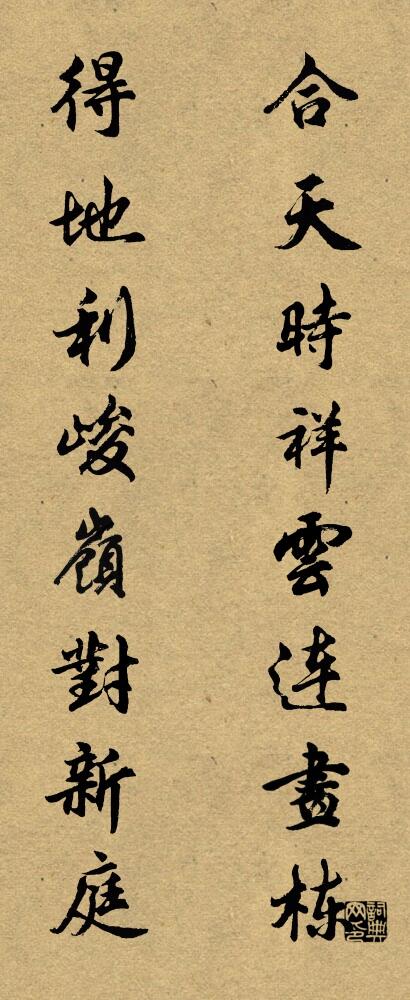 合天時祥雲連畫栋
得地利峻嶺對新庭
詞典网印